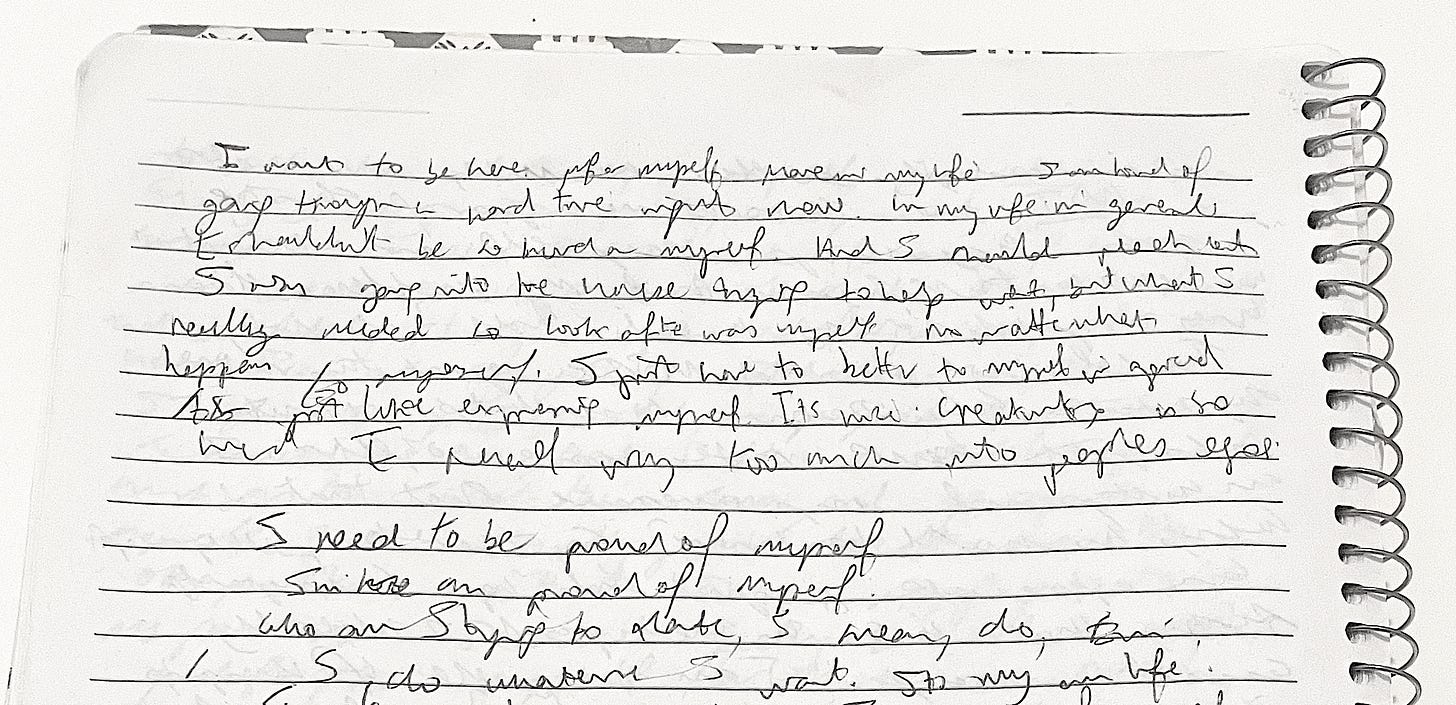 I want to be here for myself, more in my life I am kind of
going through a hard time right now. in my life in general,
I shouldn't be so hard on myself. And I should reach out
I was going into the house trying to help out, but what I
really needed to look after was myself no matter what
happen to myself. I just have to better to myself in general
just like expressing myself. Its nice. Creativity is so
I read way too much into peoples egos.
I need to be proud of myself
am proud of myself.
who am I trying to date, I mean, do,
I do whatever I want. Its my own life.